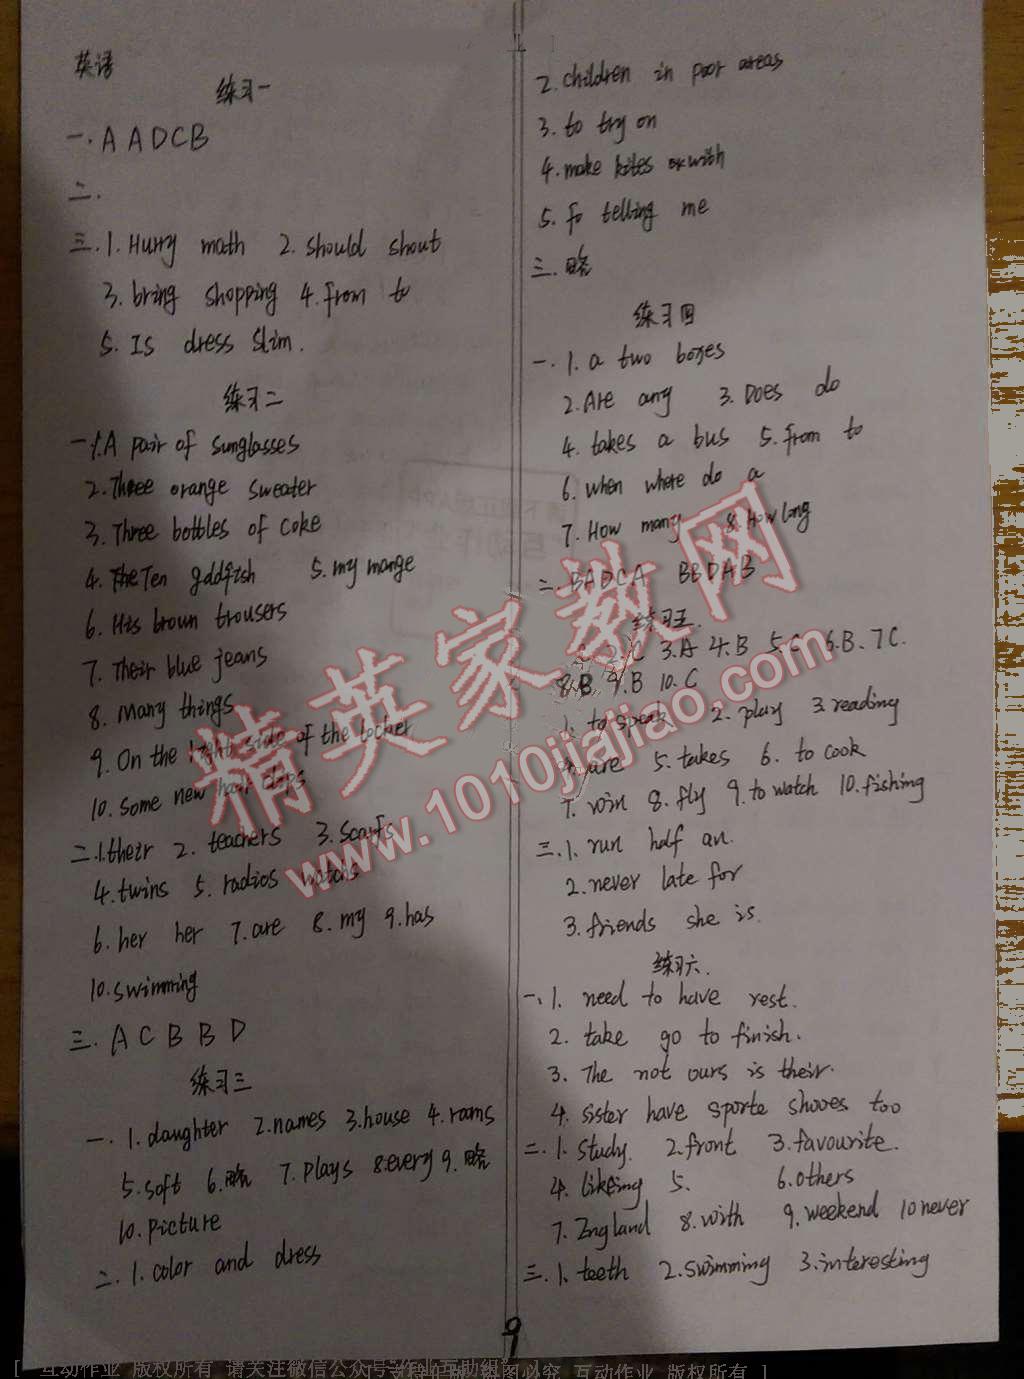 英语
练习一
一. A A D C B
二.
三. 1. Hurry math 2. should shout
3. bring shopping 4. from to
5. Is dress slim.
练习二
一. 1. A pair of sunglasses
2. Three orange sweater
3. Three bottles of coke
4. Ten goldfish 5. my mange
6. His brown trousers
7. Their blue jeans
8. Many things
9. On the right side of the locker
10. some new hair clips
二. 1. their 2. teachers 3. Scarfs
4. twins 5. radios watchs
6. her her 7. are 8. my 9. has
10. swimming
三. A C B B D
练习三
一. 1. daughter 2. names 3. house 4. rams
5. soft 6. 略 7. plays 8. every 9. 略
10. picture
二. 1. color and dress
2. children in poor areas
3. to try on
4. make kites with
5. fo telling me
三. 略
练习四
一. 1. a two boxes
2. Are any 3. Does do
4. takes a bus 5. from to
6. when where do a
7. How many 8. How long
二. BADCA BBDAB
练习五.
C 3. A 4. B 5. C 6. B. 7 C.
8. B 9. B 10. C
1. to speak 2. play 3. reading
are 5. takes 6. to cook
7. win 8. fly 9. to watch 10. fishing
三. 1. run half an.
2. never late for
3. friends she is.
练习六.
一. 1. need to have rest.
2. take go to finish.
3. The not ours is their.
4. sister have sporte shooes too
二. 1. study. 2. front 3. favourite.
4. likeing 5. 6. others
7. England 8. with 9. weekend 10 never
三. 1. teeth 2. swimming 3. interesting
9
精英家教网
www.1010jiajiao.com
[ 互动作业 版权所有 请关注微信公众号"作业互助组"
互动作业 版权所有 ]